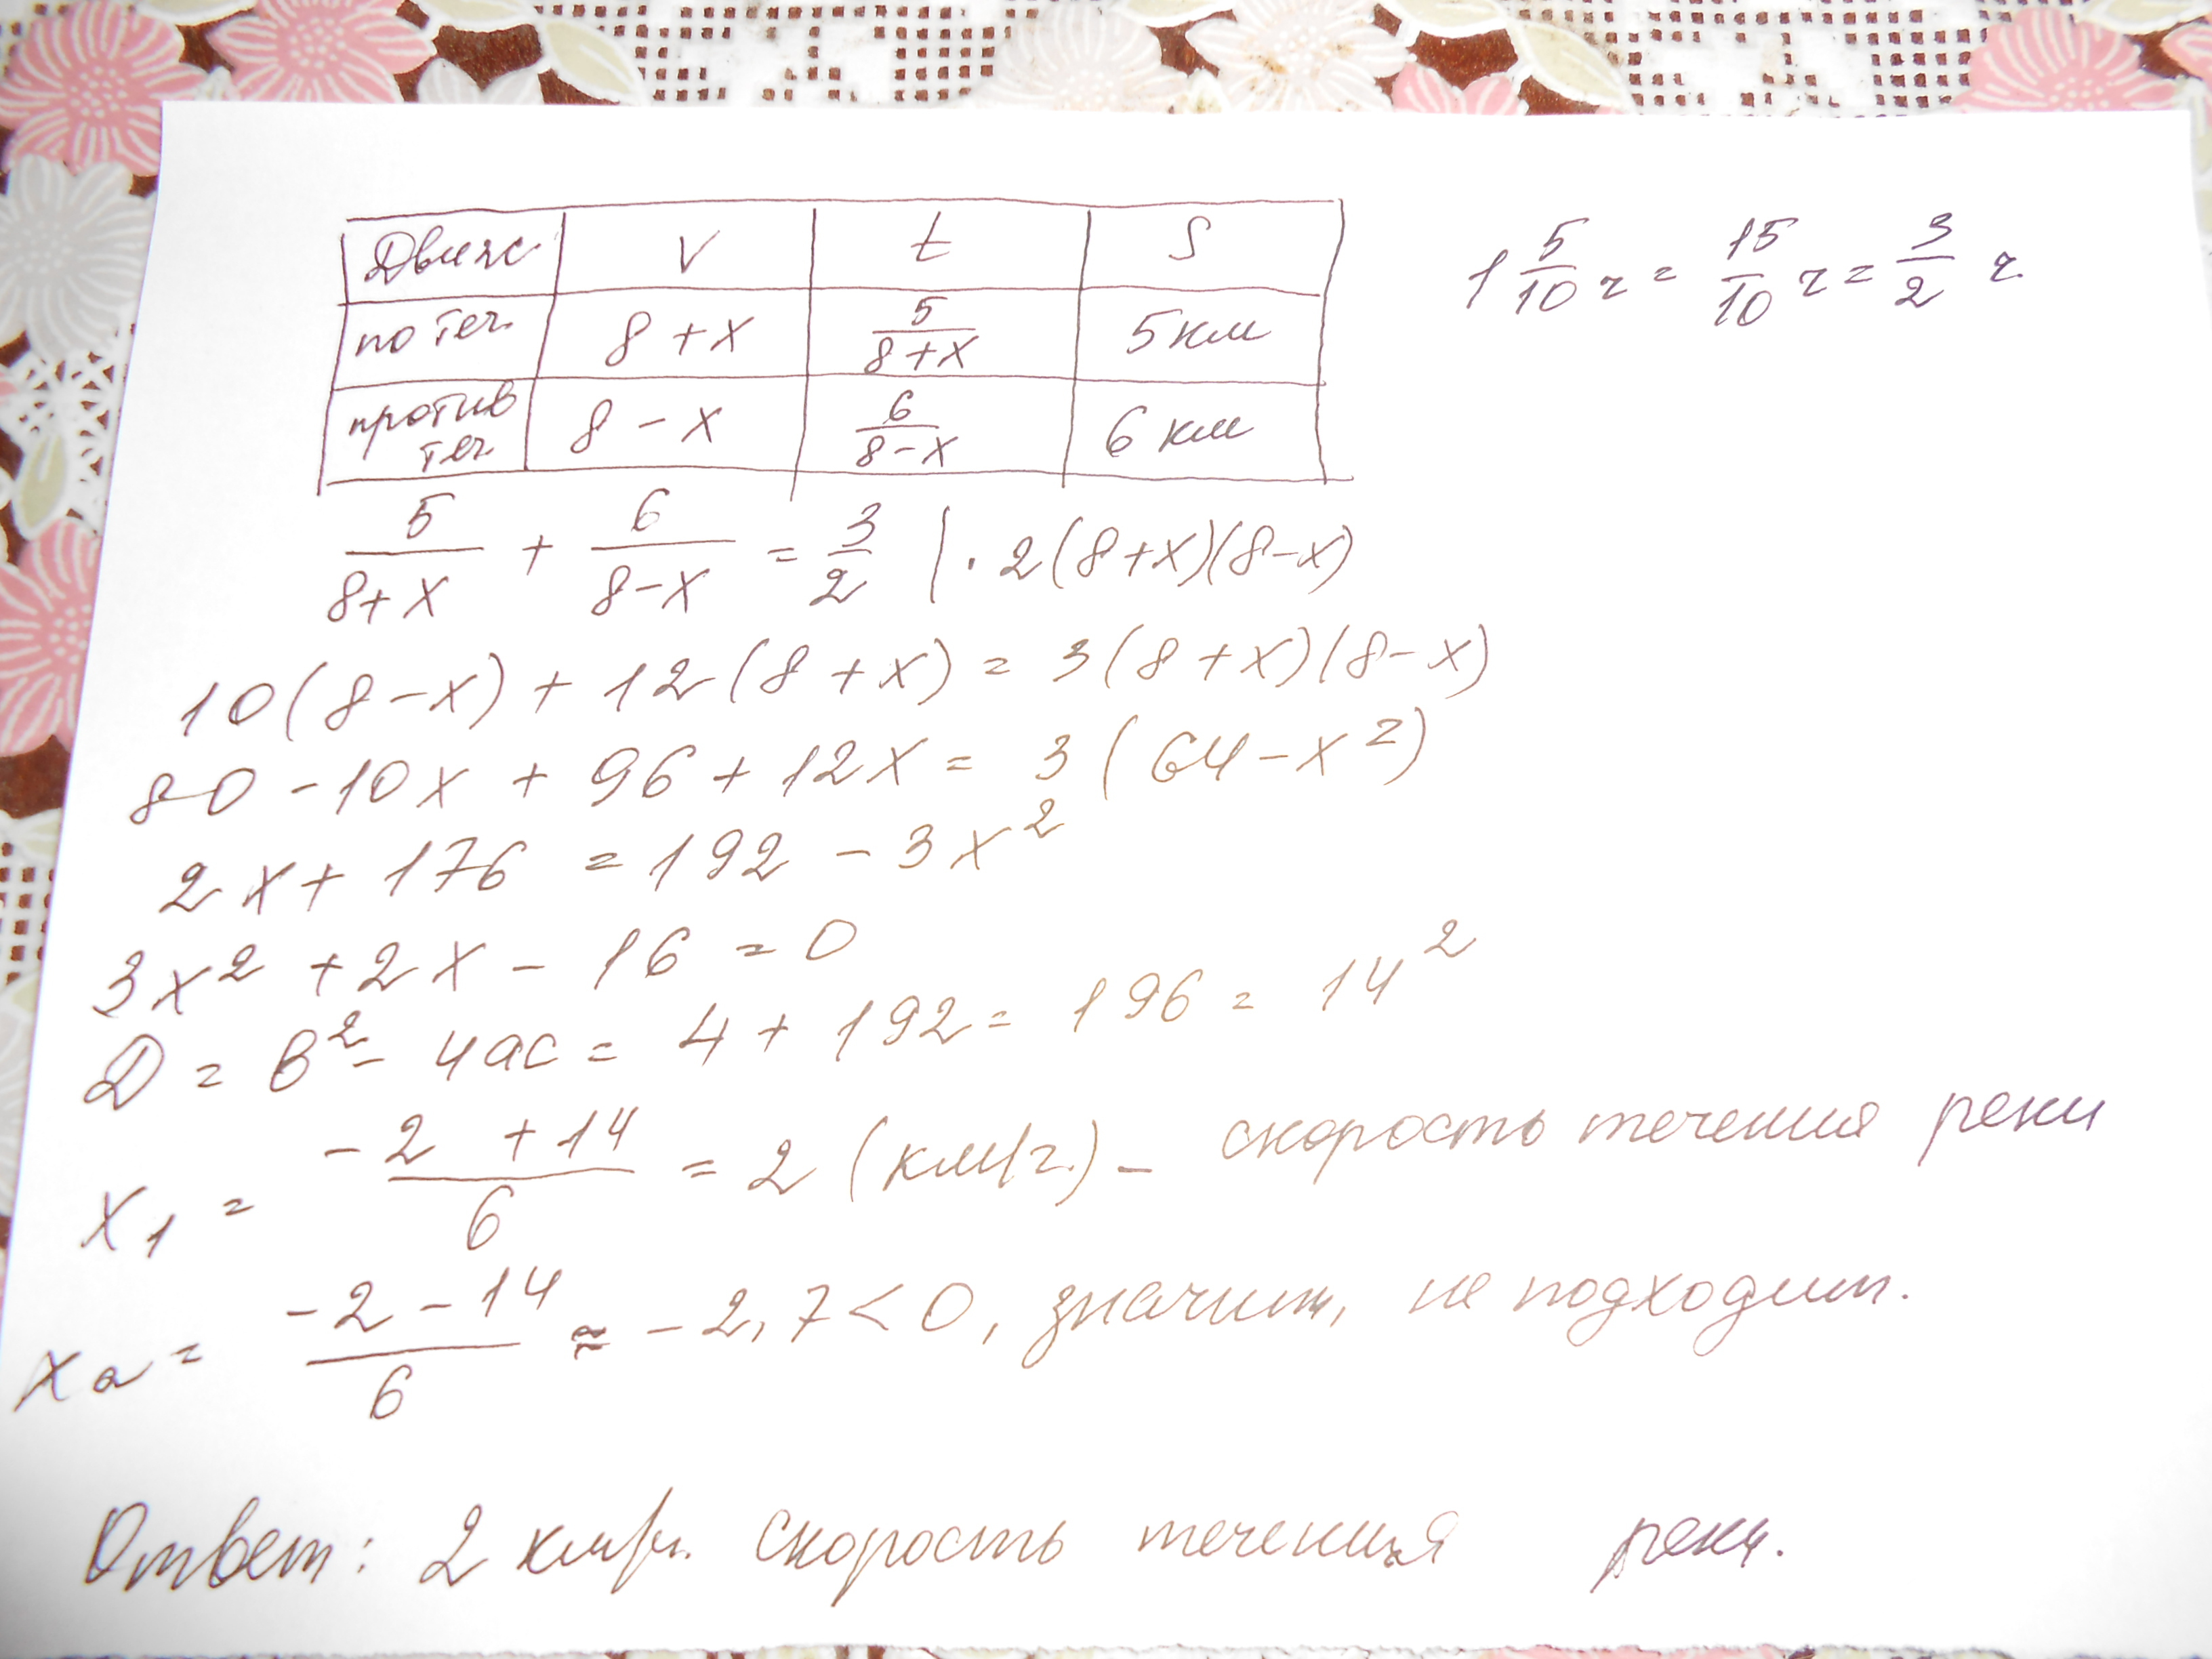 Движ V t S
1 5/10 ч = 15/10 ч = 3/2 ч.
по теч. 8 + x 5/(8+x) 5 км
против теч 8 - x 6/(8-x) 6 км
5/(8+x) + 6/(8-x) = 3/2 | · 2(8+x)(8-x)
10(8-x) + 12(8+x) = 3(8+x)(8-x)
80 - 10x + 96 + 12x = 3(64 - x²)
2x + 176 = 192 - 3x²
3x² + 2x - 16 = 0
D = в² - 4ac = 4 + 192 = 196 = 14²
x₁ = (-2 + 14)/6 = 2 (км/ч.) - скорость течения реки
x₂ = (-2 - 14)/6 ≈ -2,7 < 0, значит, не подходит.
Ответ: 2 км/ч. скорость течения реки.